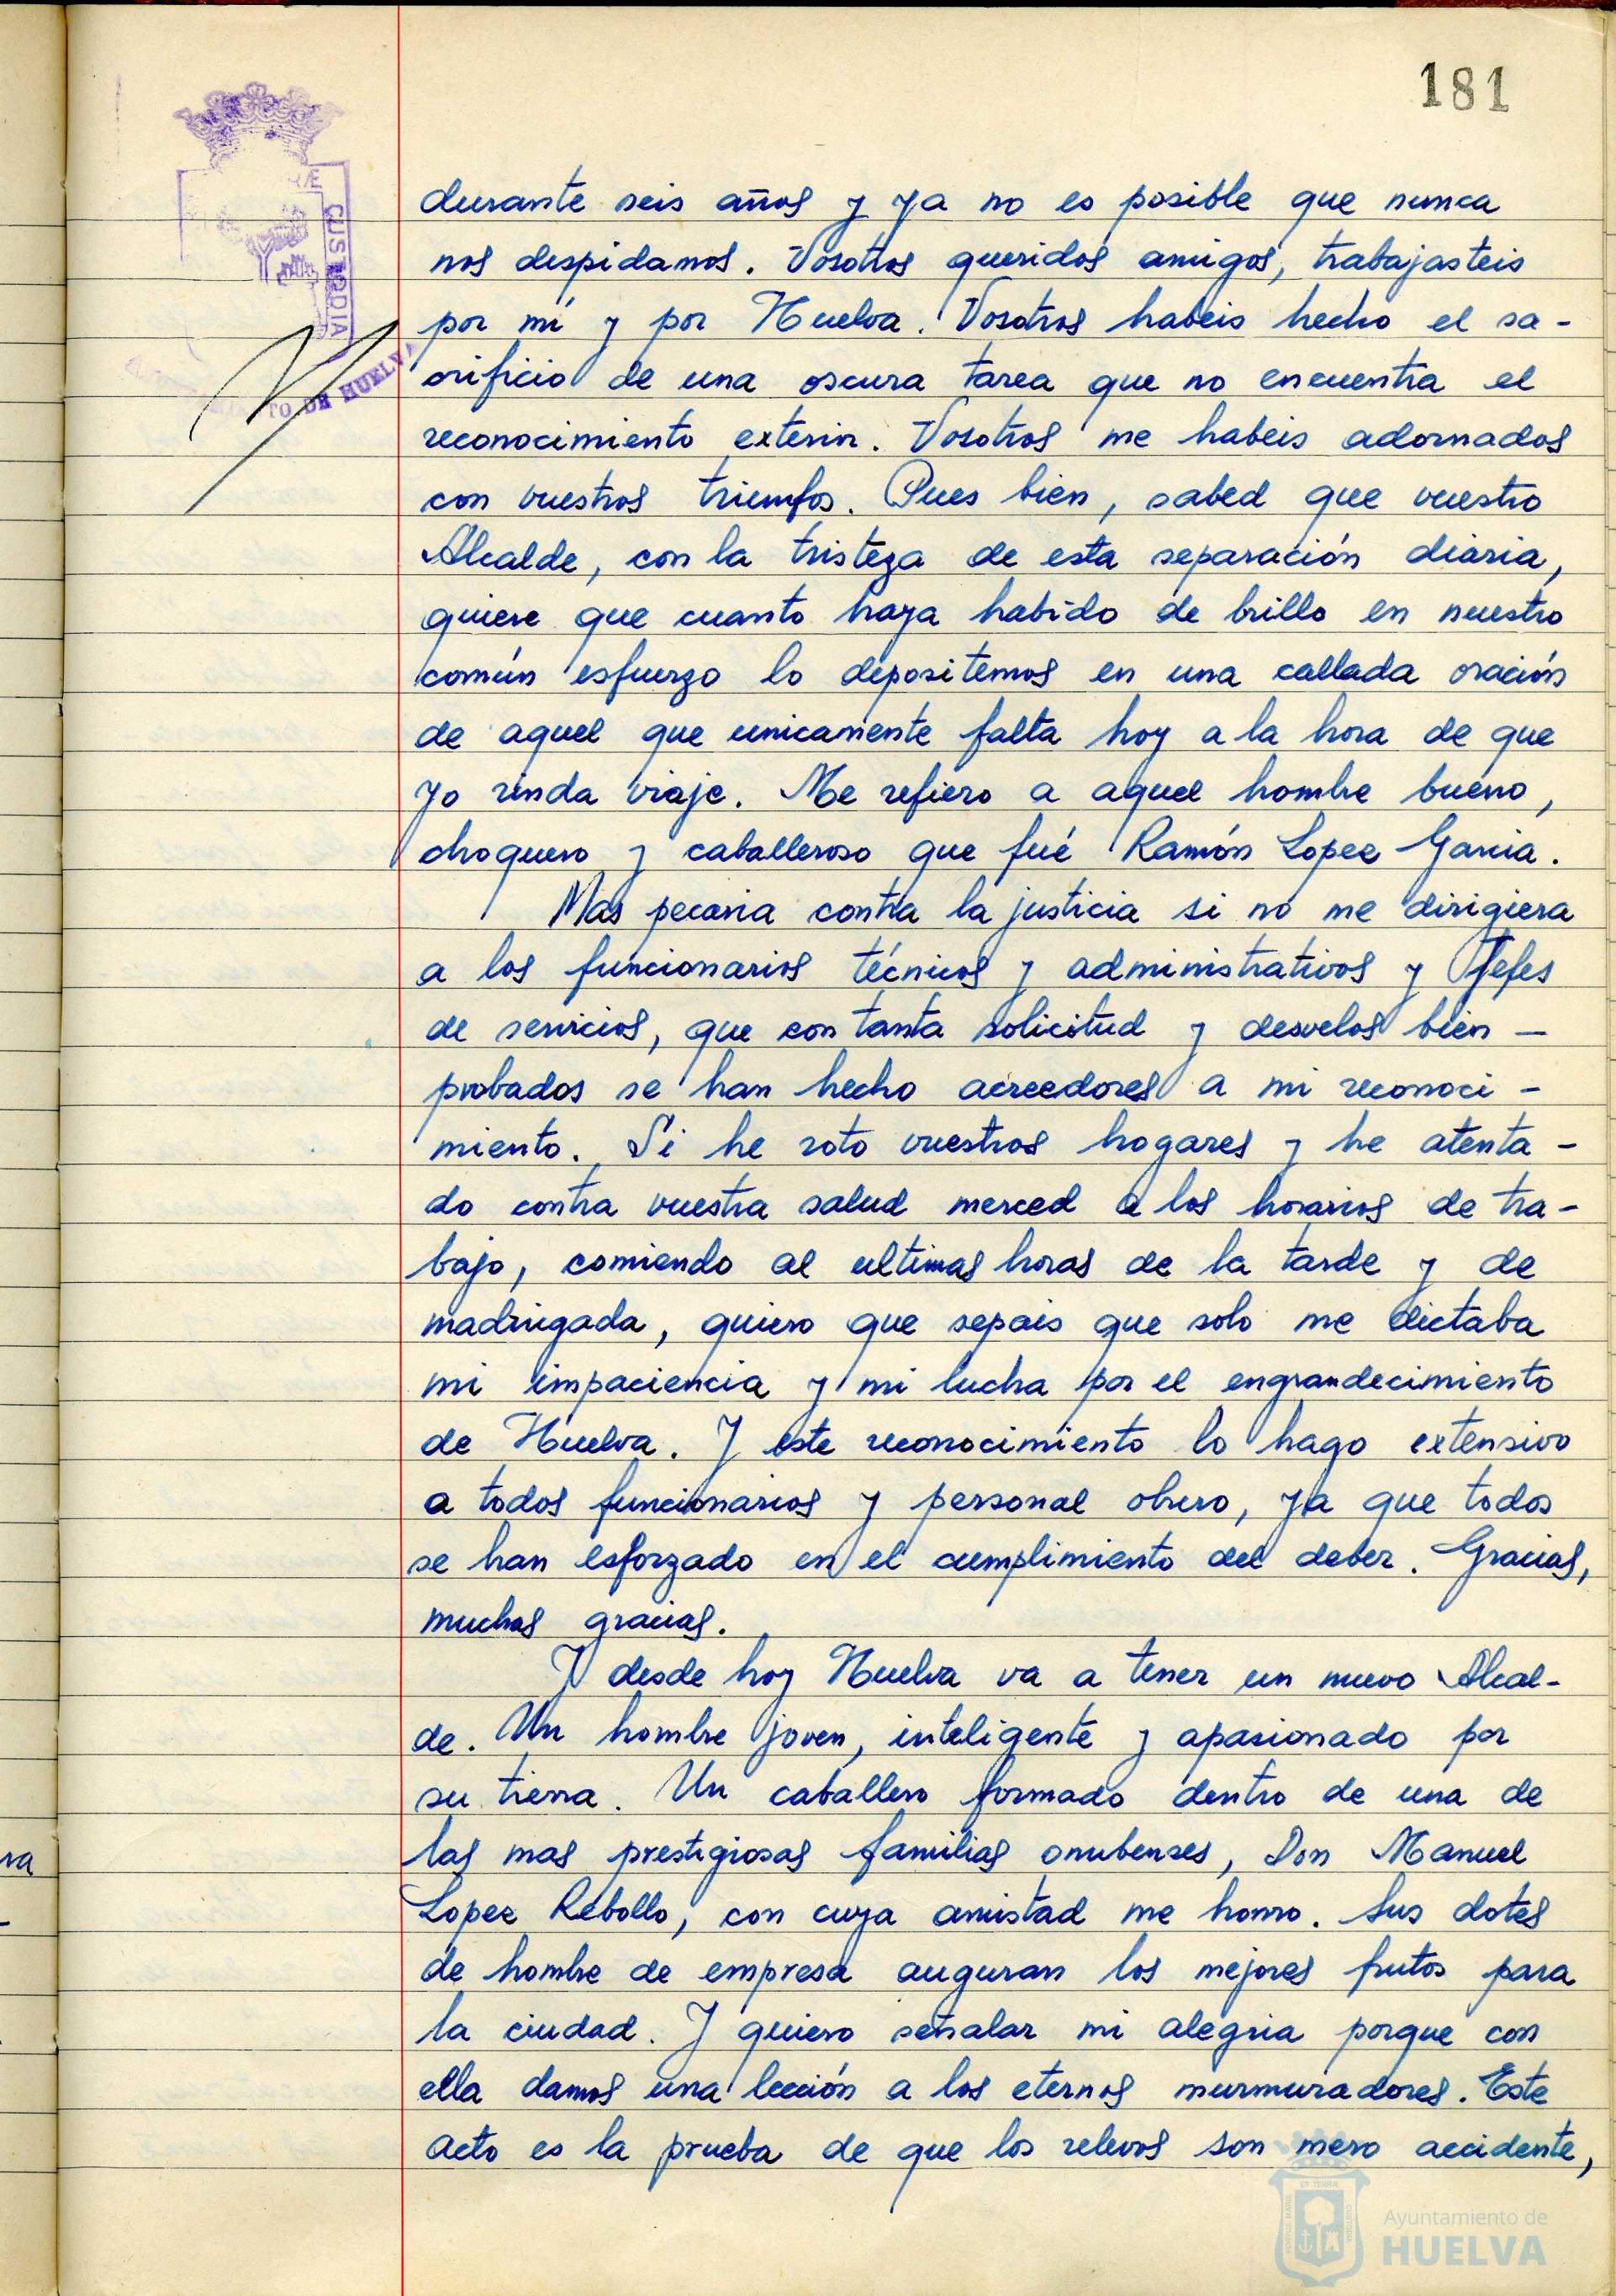 181
durante seis años y ya no es posible que nunca
nos despidamos. Vosotros queridos amigos, trabajasteis
por mí y por Huelva. Vosotros habeis hecho el sa-
crificio de una oscura tarea que no encuentra el
reconocimiento exterior. Vosotros me habeis adornados
con vuestros triumfos. Pues bien, sabed que vuestro
Alcalde, con la tristeza de esta separación diaria,
quiere que cuanto haya habido de brillo en nuestro
común esfuerzo lo depositemos en una callada oración
de aquel que unicamente falta hoy a la hora de que
yo rinda viaje. Me refiero a aquel hombre bueno,
choquero y caballeroso que fué Ramón Lopez Garcia.
Mas pecaria contra la justicia si no me dirigiera
a los funcionarios técnicos y administrativos y Jefes
de servicios, que con tanta solicitud y desvelos bien-
probados se han hecho acreedores a mi reconoci-
miento. Si he roto vuestros hogares y he atenta-
do contra vuestra salud merced a los horarios de tra-
bajo, comiendo al ultimas horas de la tarde y de
madrugada, quiero que sepais que solo me dictaba
mi impaciencia y mi lucha por el engrandecimiento
de Huelva. Y este reconocimiento lo hago extensivo
a todos funcionarios y personal obrero, ya que todos
se han esforzado en el cumplimiento del deber. Gracias,
muchas gracias.
Y desde hoy Huelva va a tener un nuevo Alcal-
de. Un hombre joven, inteligente y apasionado por
su tierra. Un caballero formado dentro de una de
las mas prestigiosas familias onubenses, Don Manuel
Lopez Rebollo, con cuya amistad me honro. Sus dotes
de hombre de empresa auguran los mejores frutos para
la ciudad. Y quiero señalar mi alegria porque con
ella damos una lección a los eternos murmuradores. Este
acto es la prueba de que los relevos son mero accidente,
CUSTODIA
TO DE HUELVA
Ayuntamiento de
HUELVA